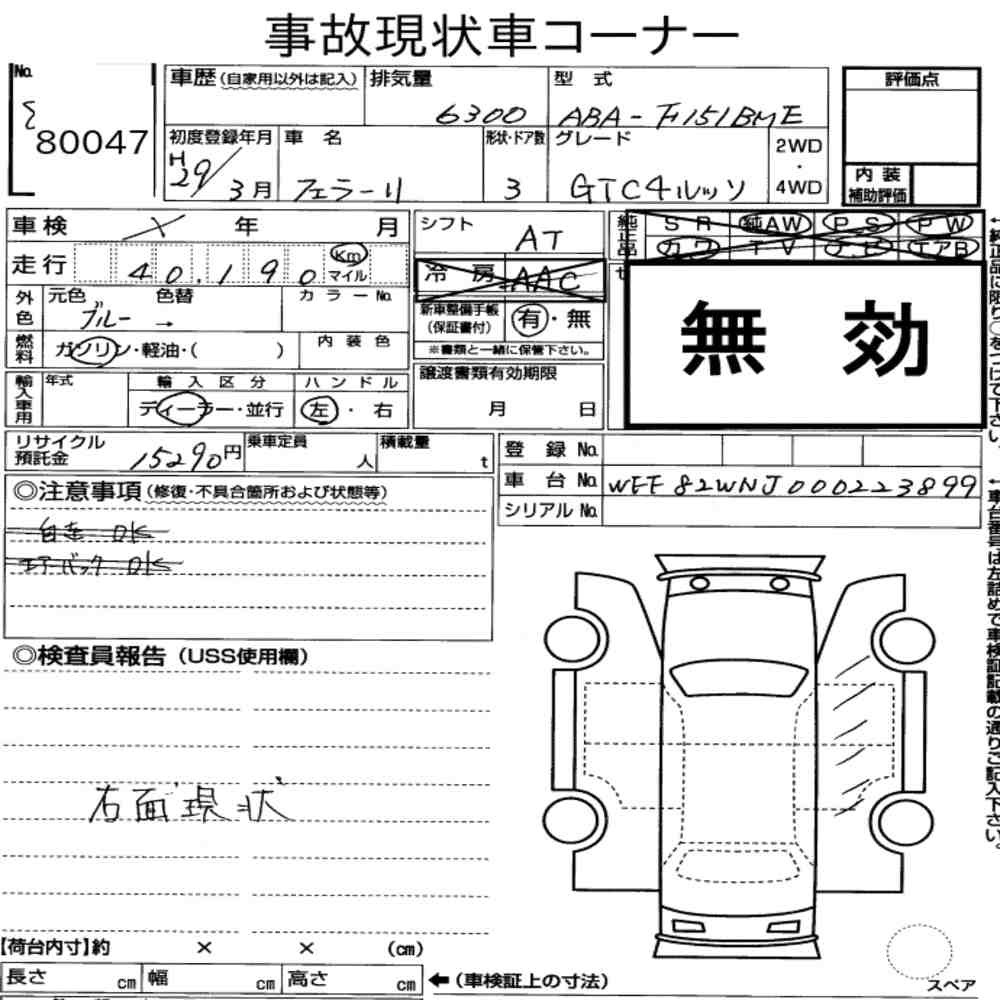 事故現状車コーナー
No.
80047
車歴(自家用以外は記入)
排気量
6300
型 式
ABA-F151BME
評価点
初度登録年月
H29/3月
車 名
フェラーリ
形状・ドア数
3
グレード
GTC4ルッソ
2WD
・
4WD
内 装
補助評価
車検
年
月
シフト
AT
純正品
S R 純AW P S P W
カワ T V ナビ エアB
走行
40,190
Km
マイル
冷 房
AAC
外色
元色
ブルー →
色替
カラーNo.
新車整備手帳
(保証書付)
有・無
※書類と一緒に保管下さい。
無 効
燃料
ガソリン・軽油・( )
内 装 色
輸入車用
年式
輸 入 区 分
ディーラー・並行
ハ ン ド ル
左・右
譲渡書類有効期限
月 日
リサイクル
預託金
15290円
乗車定員
人
積載量
t
登 録 No.
車 台 No.
WFF82WNJ000223899
シリアル No.
◎注意事項(修復・不具合箇所および状態等)
自走 OK
エアーバック OK
◎検査員報告(USS使用欄)
右面現状
【荷台内寸】約 × × (cm)
長さ cm 幅 cm 高さ cm
←(車検証上の寸法)
スペア
←純正品に限り○をつけて下さい。
←車台番号は左詰めで車検証記載の通りご記入下さい。